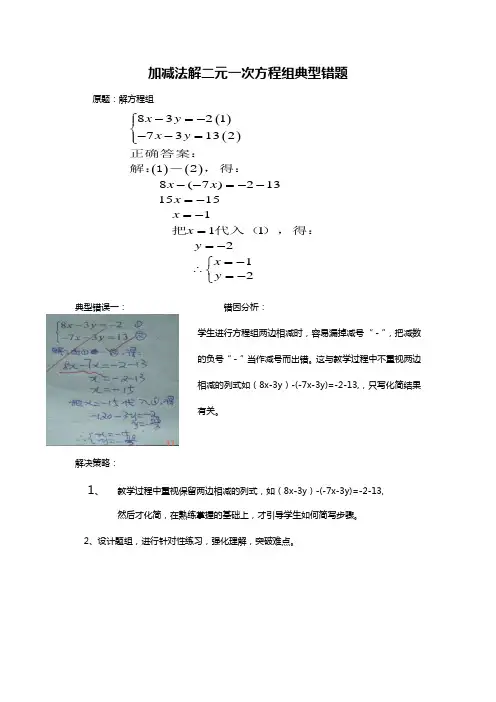 加减法解二元一次方程组典型错题
原题：解方程组
8x-3y=-2(1)
-7x-3y=13(2)
正确答案：
解:(1)-(2)，得：
8x-(-7x)=-2-13
15x=-15
x=-1
把x=1代入（1），得：
y=-2
∴{x=-1
y=-2
典型错误一：
8x-3y=-2 ①
-7x-3y=13 ②
8x-7x=-2-13
x=-2-13
x=-15
把x=-15代入①,得
-120-3y=-2
错因分析：
学生进行方程组两边相减时，容易漏掉减号“-”，把减数
的负号“-”当作减号而出错。这与教学过程中不重视两边
相减的列式如（8x-3y）-(-7x-3y)=-2-13,，只写化简结果
有关。
解决策略：
1、 教学过程中重视保留两边相减的列式，如（8x-3y）-(-7x-3y)=-2-13,
然后才化简，在熟练掌握的基础上，才引导学生如何简写步骤。
2、设计题组，进行针对性练习，强化理解，突破难点。